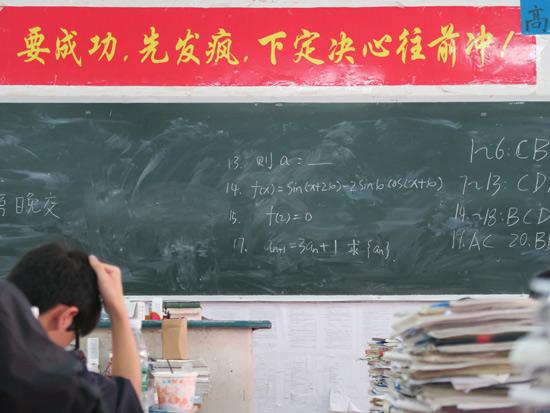 要成功,先发疯,下定决心往前冲!
高
13. 则 a = __
14. f(x)=sin(x+2φ)-2sinφcos(x+φ)
15. f(2)=0
17. aₙ₊₁=3aₙ+1 求{aₙ}
日晚交
1~6: CB
7~13: CD
14~18: BCD
19. AC 20. B